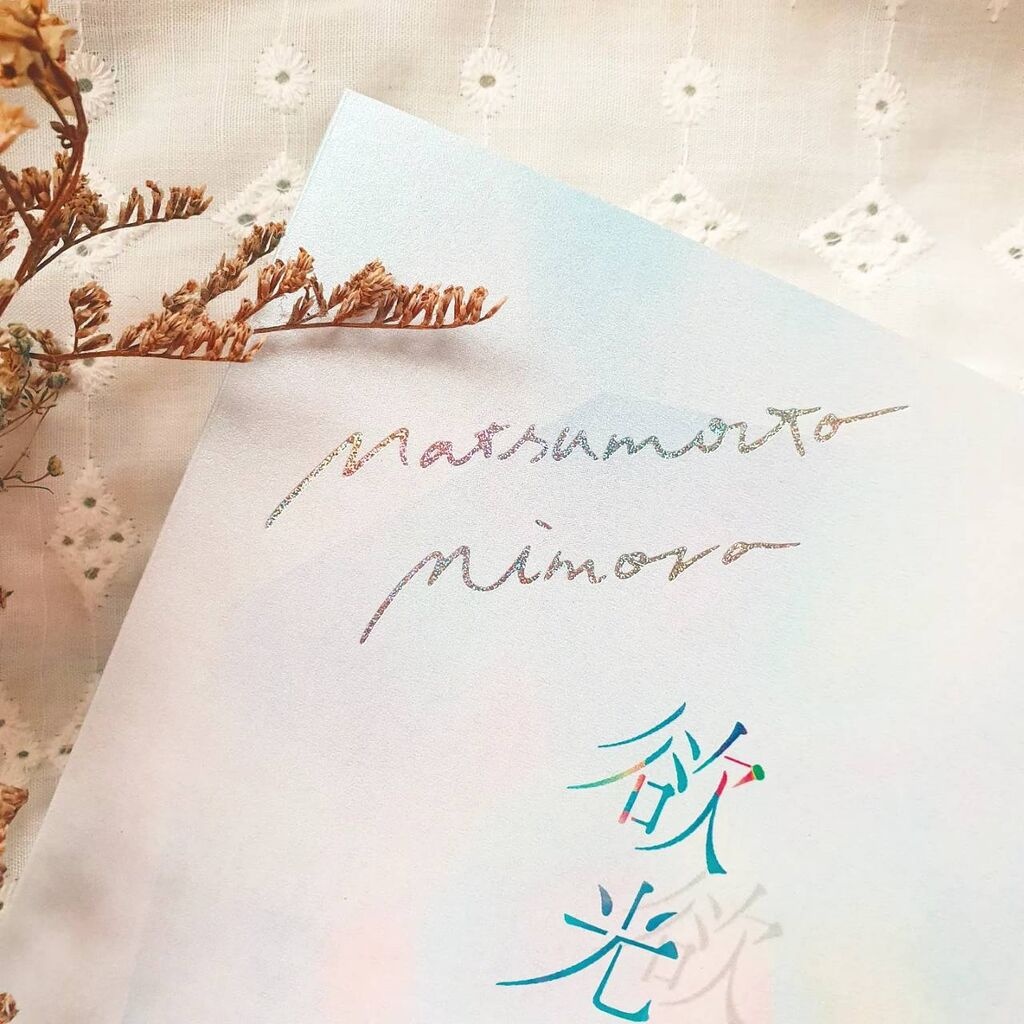 Matsumoto
Nimoro
欲
光
欲